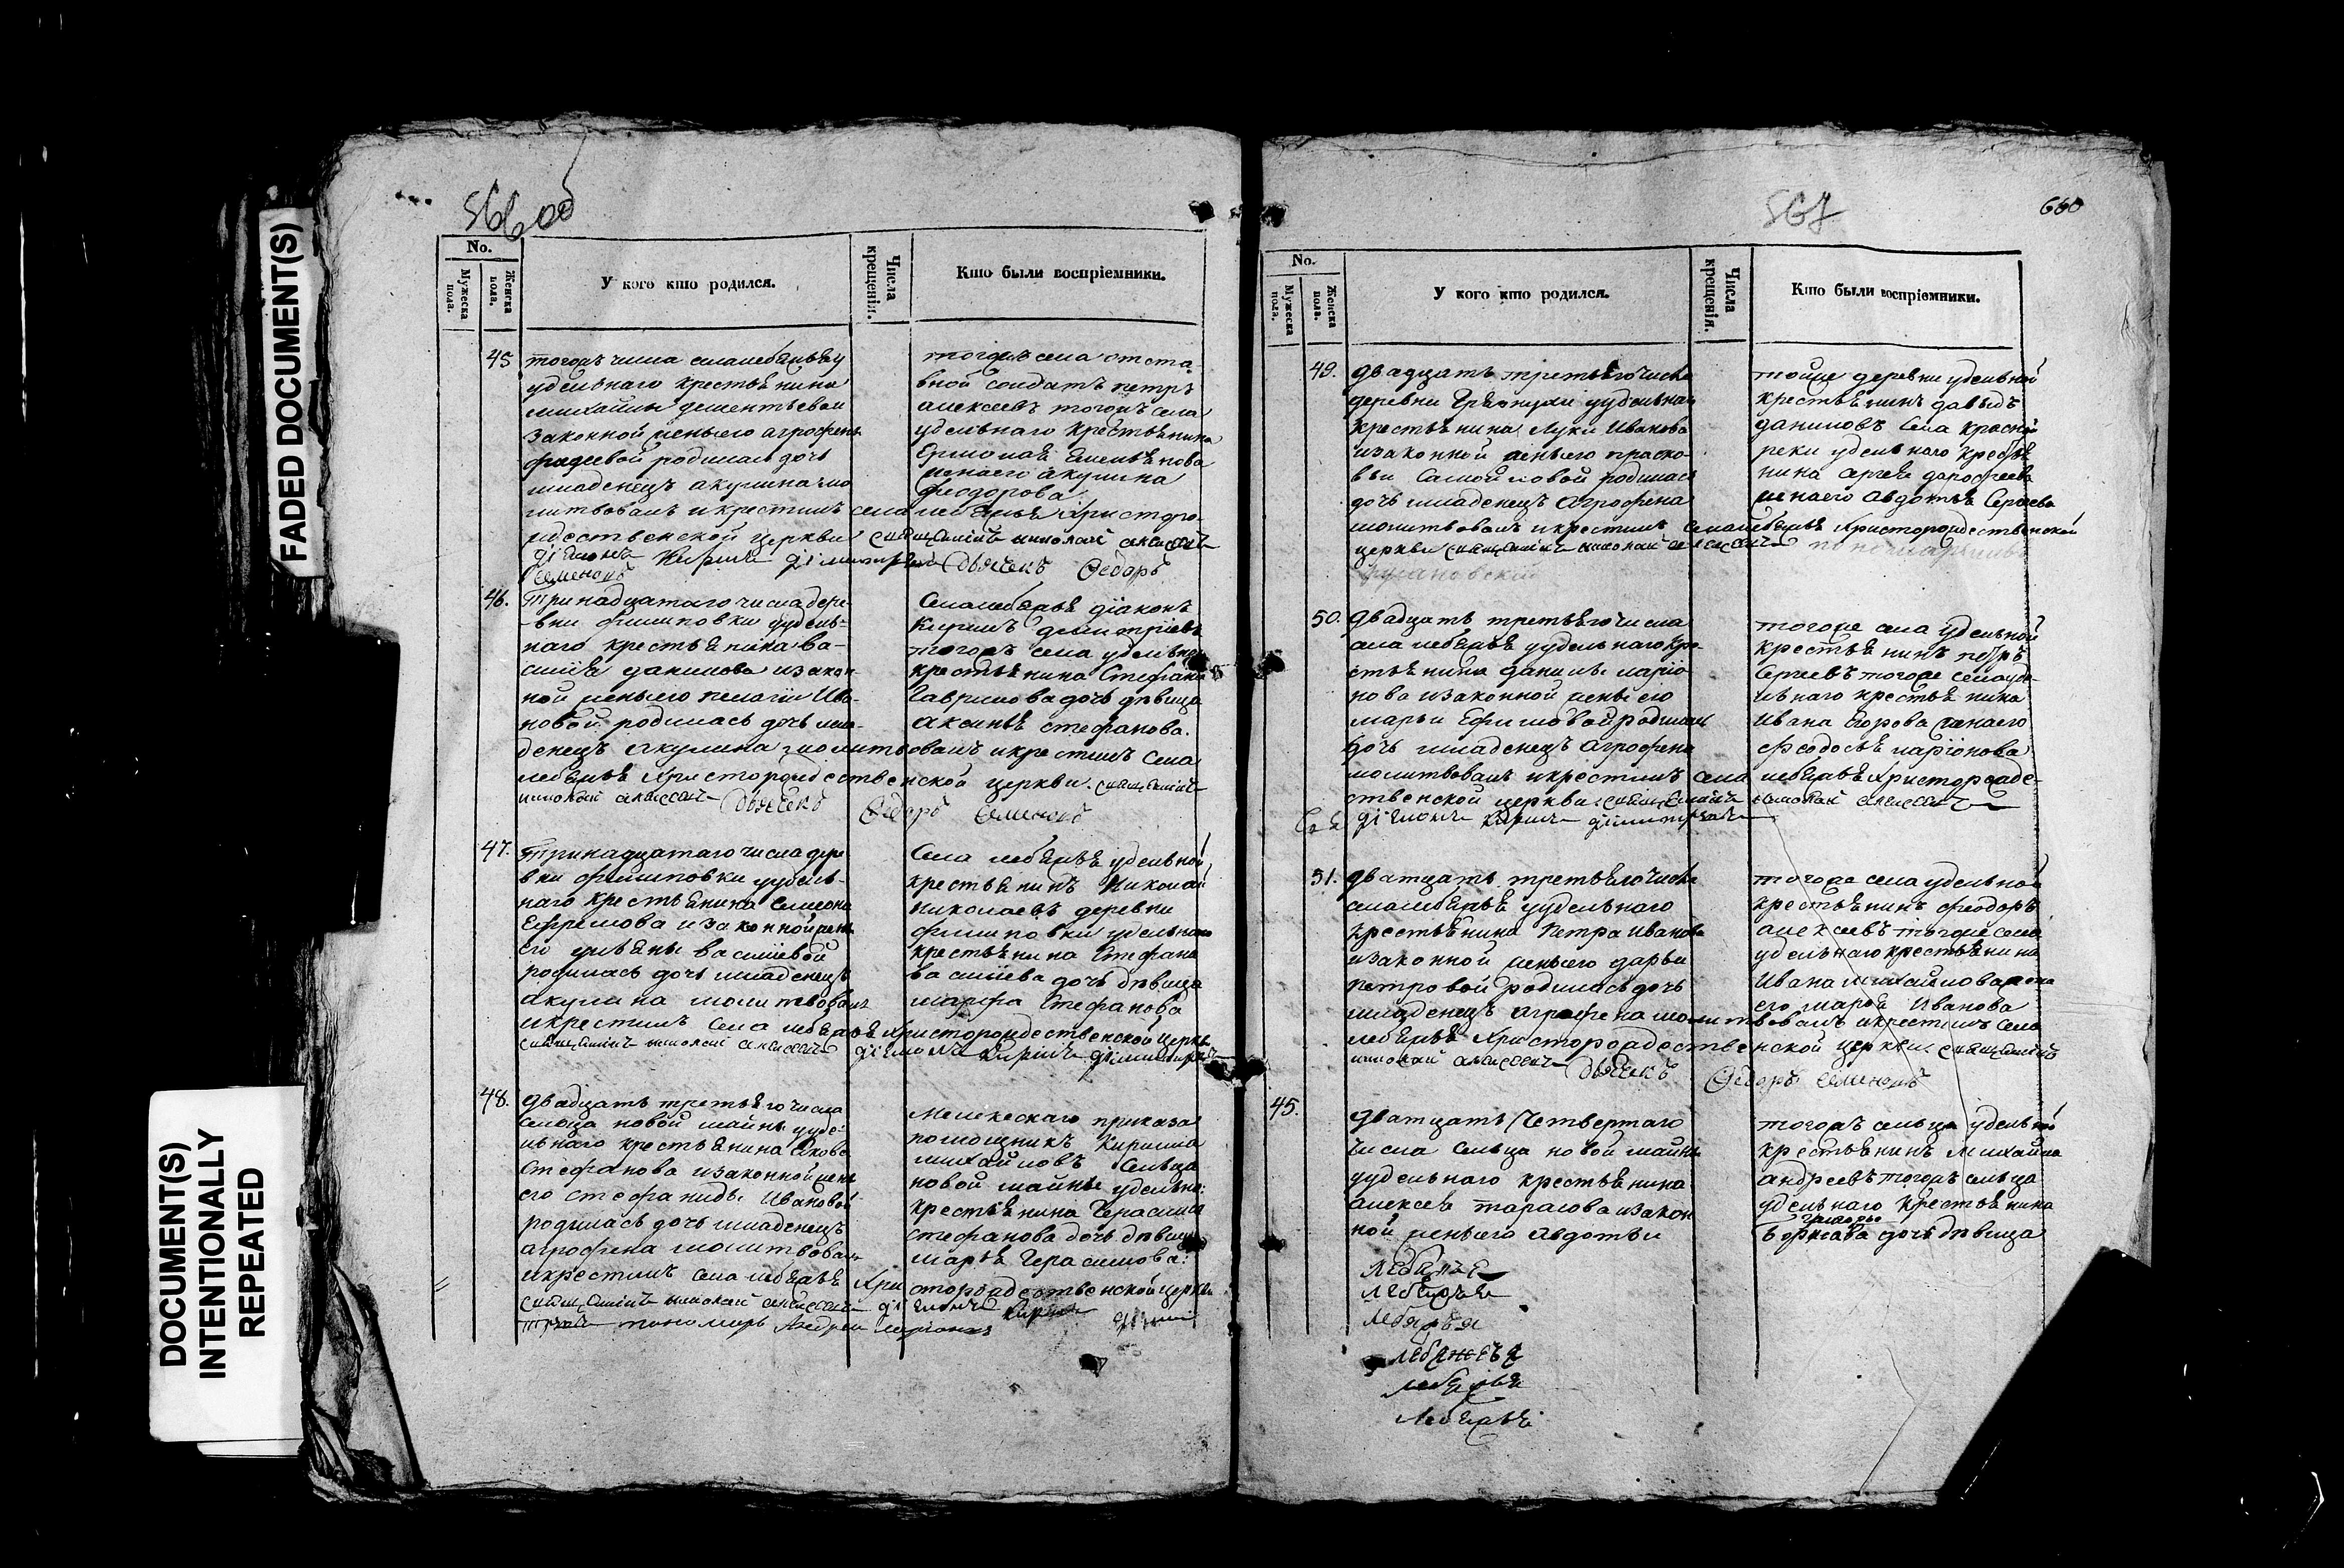 FADED DOCUMENT(S)
DOCUMENT(S)
INTENTIONALLY
REPEATED
566 об
No.
Мужеска пола.
Женска пола.
У кого кто родился.
Числа крещенія.
Кто были воспріемники.
45
тогожъ числа села лебяжья у
удельнаго крестьянина
михайлы дементьева и
законной жены его агрофены
фадеевой родилась дочь
младенецъ акулина мо
литвовалъ и крестилъ села лебяжья Христоро-
ждественской церкви священникъ николай алексеевъ
діаконъ Кирилъ дімитріевъ Дьячекъ Ѳедоръ
Семеновъ
тогожъ села отста
вной солдатъ петръ
алексеевъ тогожъ села
удельнаго крестьянина
Ермолая Емельянова
жена его акулина
феодорова
46.
Тринадцатаго числа дере-
-вни филиповки у удель-
наго крестьянина ва-
силія данилова и закон-
ной жены его пелагіи Ива-
новой родилась дочь мла-
денецъ Акулина молитвовалъ и крестилъ села
лебяжья Христорождественской церкви священникъ
николай алексеевъ Дьячекъ Ѳедоръ Семеновъ
Села лебяжья діаконъ
Кирилъ димитріевъ
тогожъ села удельнаго
крестьянина Стефана
Гаврилова дочь дѣвица
Аксинья стефанова.
47.
Тринадцатаго числа дере
вни филиповки у удель-
наго крестьянина Симеона
Ефремова и законной жены
его ульяны василіевой
родилась дочь младенецъ
акулина молитвовалъ
и крестилъ села лебяжья Христорождественской церкви
священникъ николай алексеевъ діаконъ Кирилъ дімитріевъ
Села лебяжья удельной
крестьянинъ Николай
николаевъ деревни
филиповки удельнаго
крестьянина Стефана
василіева дочь дѣвица
марфа Стефанова
48.
двадцать третьяго числа
сельца новой майны у уде-
льнаго крестьянина Якова
Стефанова и законной жены
его стефаниды Ивановой
родилась дочь младенецъ
агрофена молитвовалъ
и крестилъ села лебяжья Христорождественской церкви
священникъ николай алексеевъ діаконъ Кирилъ
пономарь Андрей
Мелекескаго приказа
помощникъ Кирилла
михайловъ Сельца
новой майны удельна:
крестьянина Герасима
стефанова дочь дѣвица
марья Герасимова:
567
660
No.
Мужеска пола.
Женска пола.
У кого кто родился.
Числа крещенія.
Кто были воспріемники.
49.
двадцать третьяго числа
деревни Грязнухи у удельнаго
крестьянина Луки Иванова
и законной жены его праско-
вьи Самойловой родилась
дочь младенецъ агрофена
молитвовалъ и крестилъ села лебяжья Христорождественской
церкви священникъ николай алексеевъ
тойже деревни удельной
крестьянинъ давыдъ
даниловъ Села красной
реки удельнаго кресьтя
нина сергея дорофеева
жена его Авдотья Сергеева
50.
двадцать третьяго числа
села лебяжья у удельнаго кре-
стьянина данилы ларіо
нова и законной жены его
марьи Ефимовой родилась
дочь младенецъ агрофена
молитвовалъ и крестилъ села лебяжья Христорожде-
ственской церкви священникъ николай алексеевъ
діаконъ Кирилъ дімитріевъ
тогоже села удельной
крестьянинъ петръ
Сергеевъ тогоже села уде-
льнаго крестьянина
Ивана Егорова жена его
Феодосья ларіонова
51.
двадцать третьяго числа
села лебяжья у удельнаго
крестьянина Петра Иванова
и законной жены его дарьи
петровой родилась дочь
младенецъ агрофена молитвовалъ и крестилъ села
лебяжья Христорождественской церкви священникъ
николай алексеевъ Дьячекъ Ѳедоръ Семеновъ
тогоже села удельной
крестьянинъ феодоръ
алексеевъ тогоже села
удельнаго крестьянина
Ивана михайлова жена
его марья Иванова
45.
дватцать Четвертаго
числа Сельца новой майны
у удельнаго крестьянина
алексея тарасова и закон
ной жены его Авдотьи
тогожъ сельца удельной
крестьянинъ Михайла
андреевъ тогожъ сельца
удельнаго крестьянина
дочь дѣвица
Лебяжье
Лебяжья
Лебяжья
Лебяжья
Лебяжья
Лебяжья